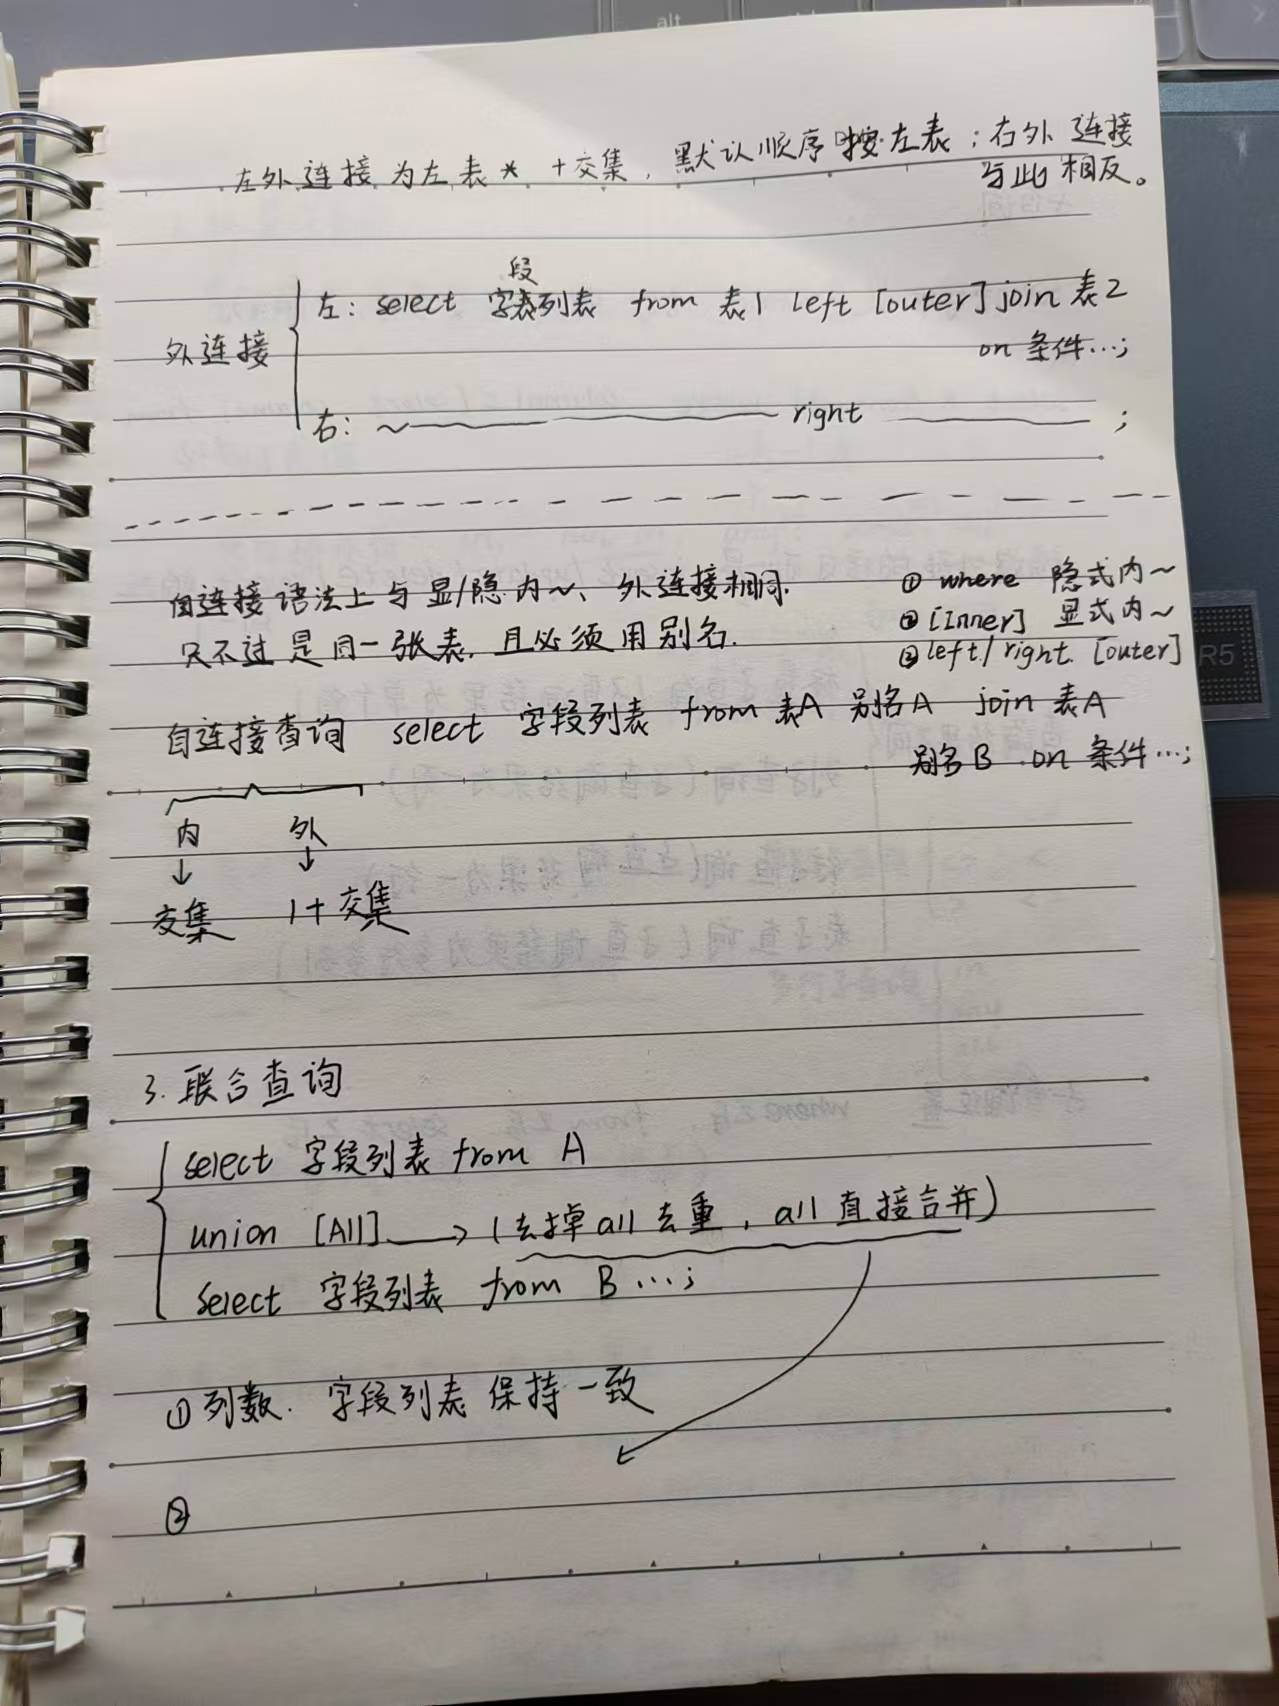 alt
左外连接为左表* +交集，默认顺序按左表；右外连接
与此相反。
外连接
左：select 字段列表 from 表1 left [outer] join 表2
on 条件…;
右：～ right ;
自连接语法上与显/隐内～、外连接相同.
只不过是同一张表，且必须用别名.
① where 隐式内～
② [Inner] 显式内～
③ left/right [outer]
R5
自连接查询 select 字段列表 from 表A 别名A join 表A
别名B on 条件…;
内 外
↓ ↓
交集 1+交集
3. 联合查询
select 字段列表 from A
union [All] → (去掉all去重，all直接合并)
select 字段列表 from B …;
①列数.字段列表保持一致
②